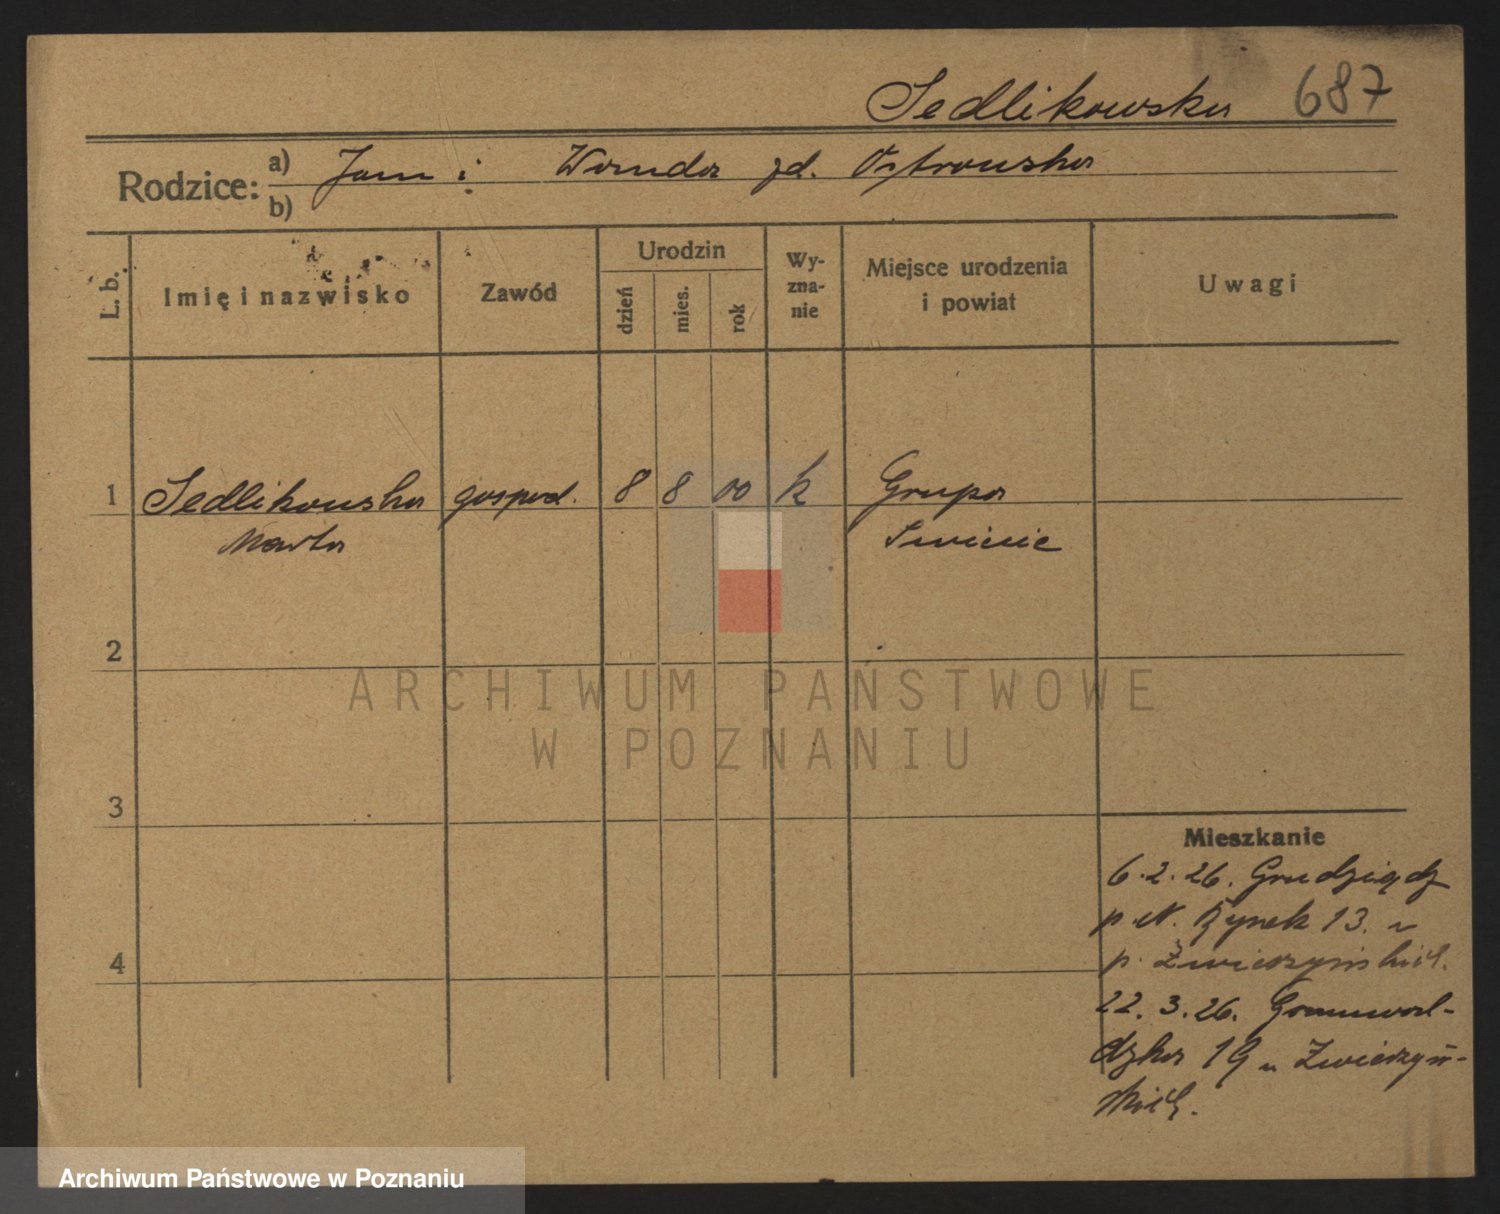 Sedlikowska 687
Rodzice: a) Jan i Wanda zd. Ostrowska
b)
L. b.
Imię i nazwisko
Zawód
Urodzin
dzień
mies.
rok
Wy-
zna-
nie
Miejsce urodzenia
i powiat
Uwagi
1 Sedlikowska gospod. 8 8 00 k Grupa
Marta Swiecie
2
3
4
Mieszkanie
6.2.26. Grudziądz
p. N. Rynek 13. u
p. Zwierzyńskich.
22.3.26. Grunwal-
dzka 19 u Zwierzyń-
skich.
ARCHIWUM PAŃSTWOWE
W POZNANIU
Archiwum Państwowe w Poznaniu